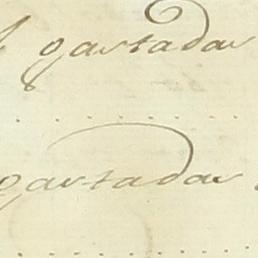 gastadas
gastadas